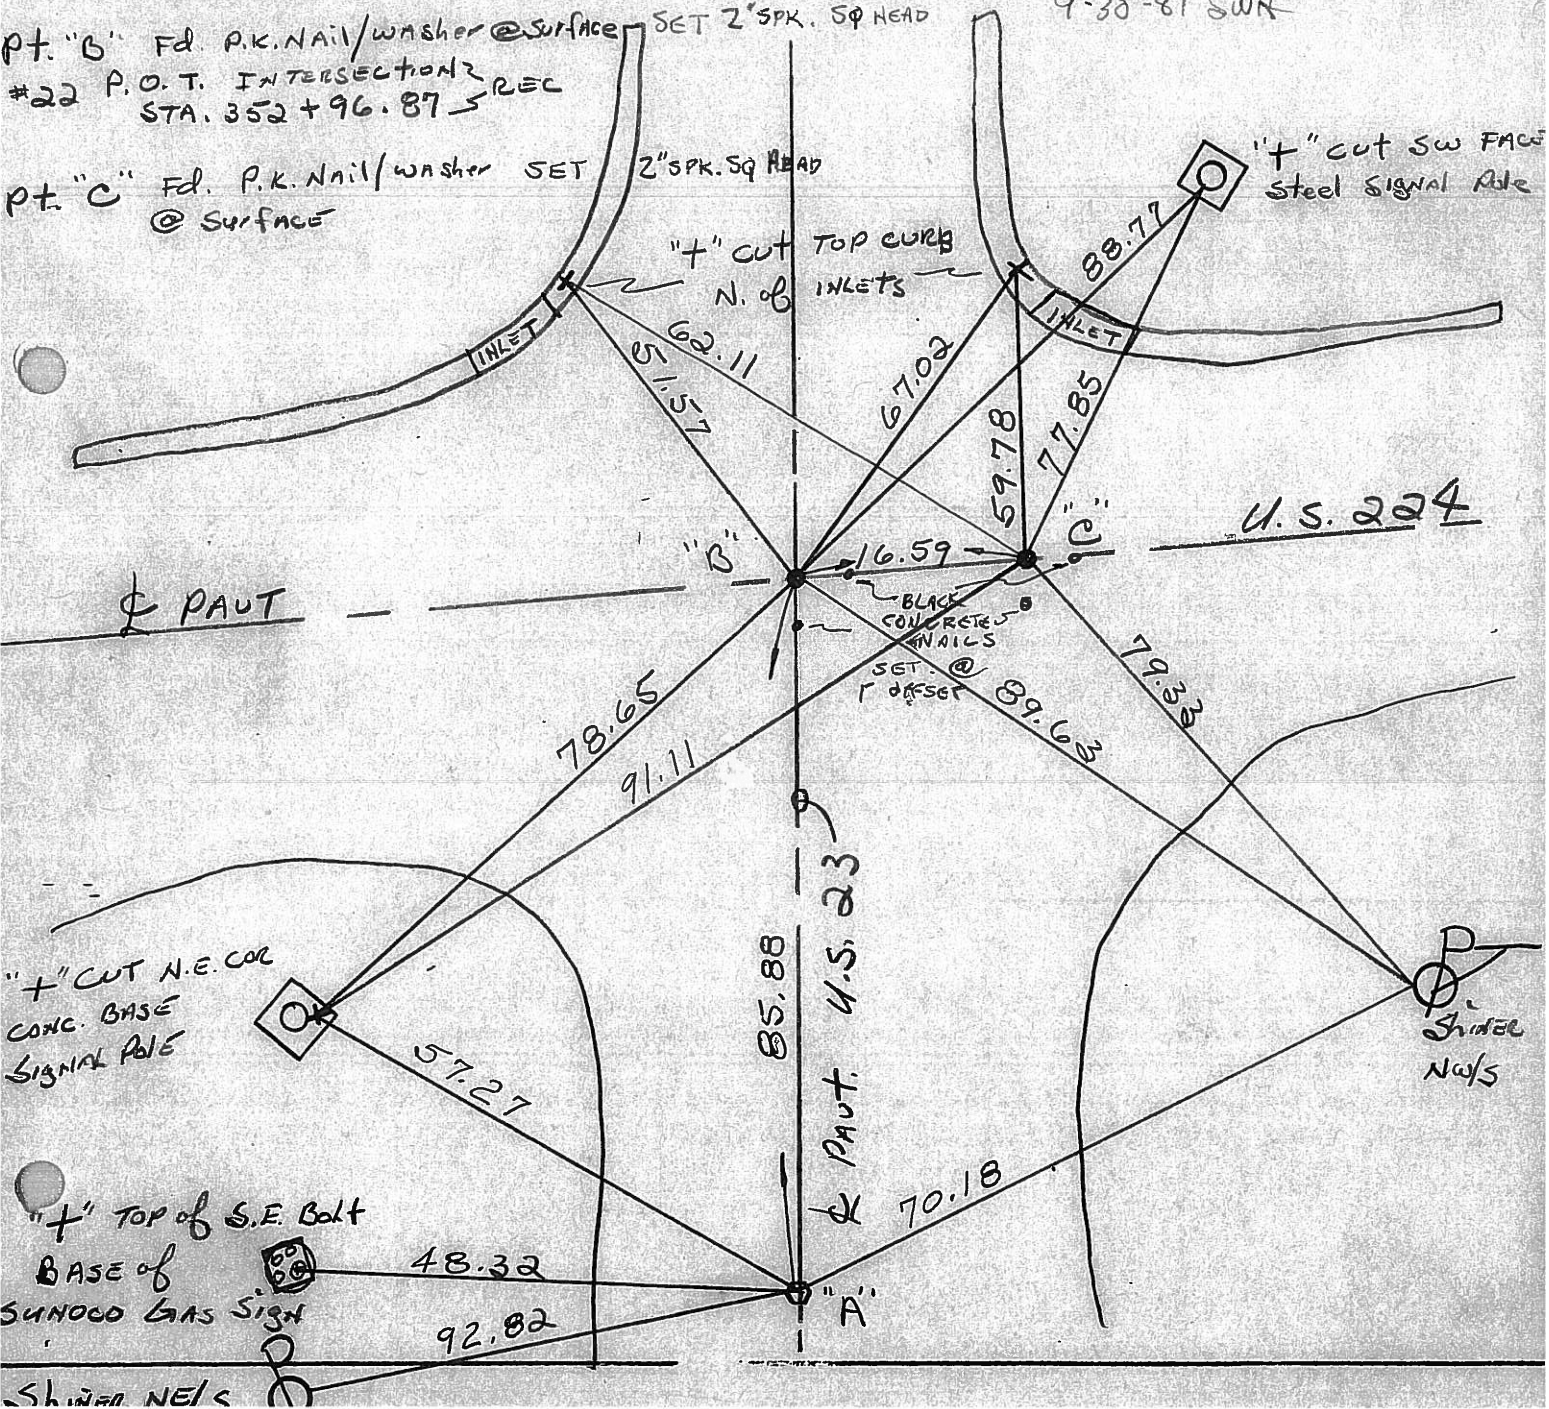 pt. "B" Fd. P.K. NAil/wAsher @ Surface SET 2" SPK. SQ HEAD
#22 P.O.T. INTERSECTION REC
STA. 352 + 96.87
pt. "C" Fd. P.K. NAil/wAsher SET 2" SPK. SQ HEAD
@ SurfACE
"+" cut SW FACE
Steel SIGNAL Pole
"+" cut TOP CURB
N. of INLETS
88.77
INLET
INLET
62.11
51.57
67.02
59.78
77.85
"C"
U.S. 224
"B"
16.59
℄ PAUT
BLACK
CONCRETE
NAILS
SET @
1' OFFSET
78.65
91.11
89.63
79.33
℄ PAUT. U.S. 23
85.88
"+" CUT N.E. COR
CONC. BASE
SIGNAL PolE
P
ShiNER
NW/S
57.27
70.18
"+" TOP of S.E. Bolt
BASE of
SUNOCO GAS SigN
48.32
"A"
92.82
P
ShiNER NE/S